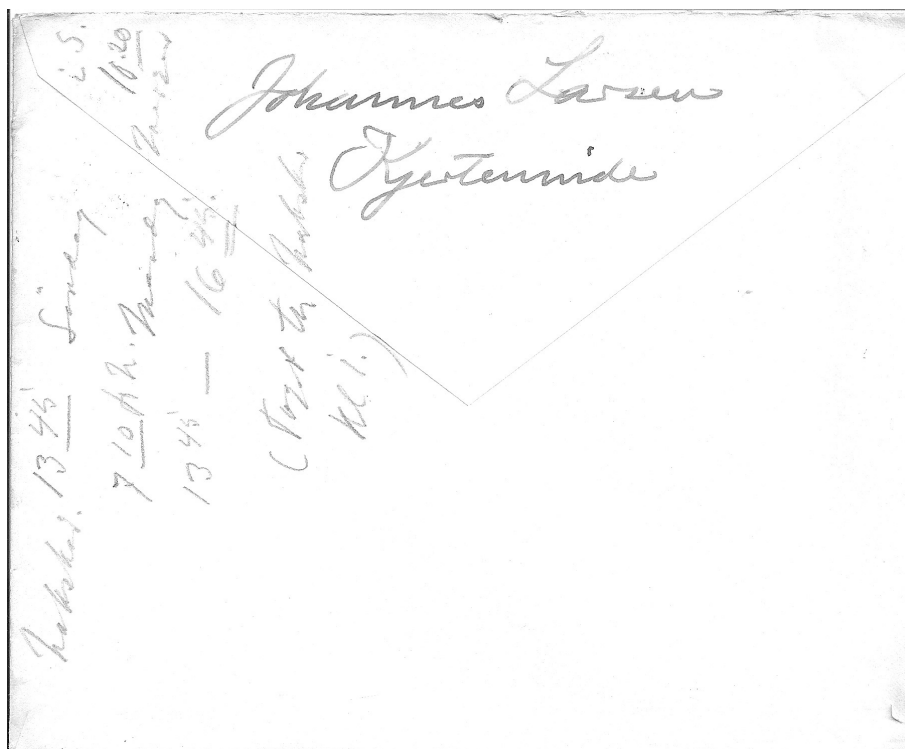 Johannes Larsen
Kjerteminde
Nakskov. 13 45 Söndag i S.
7 10 Mandag 16.20
13 45 — 16 45.
(Toget Nakskov
Kl 1.)